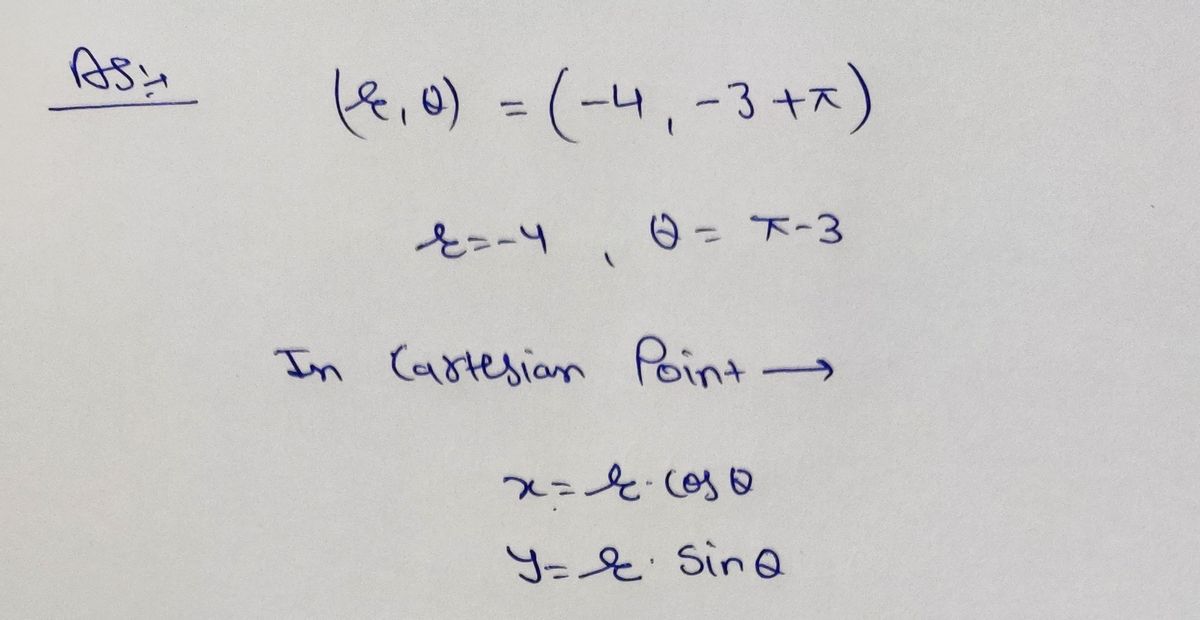 AS:-
(r, θ) = (-4, -3+π)
r=-4, θ = π-3
In Cartesian Point →
x = r. cos θ
y = r. Sin θ